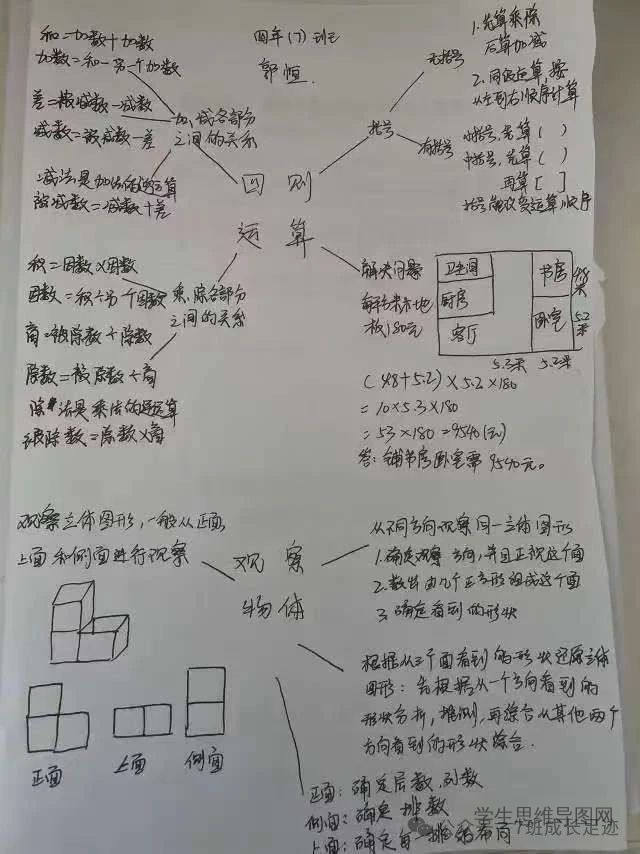 四年(7)班
郭恒
四则
运算
和=加数+加数
加数=和-另一个加数
差=被减数-减数
减数=被减数-差
减法是加法的逆运算
被减数=减数+差
加、减各部分
之间的关系
积=因数×因数
因数=积÷另一个因数
商=被除数÷除数
除数=被除数÷商
除法是乘法的逆运算
被除数=除数×商
乘、除各部分
之间的关系
括号
无括号
1.先算乘除
后算加减
2.同级运算,按
从左到右顺序计算
有括号
小括号,先算( )
中括号,先算( )
再算[ ]
括号能改变运算顺序
解决问题
每平方米木地
板180元
卫生间
厨房
客厅
书房
卧室
4.8米
5.2米
5.3米
5.2米
(4.8+5.2)×5.2×180
=10×5.3×180
=53×180=9540(元)
答:铺书房卧室需9540元。
观察
物体
观察立体图形,一般从正面,
上面和侧面进行观察
正面
上面
侧面
从不同方向观察同一立体图形
1.确定观察方向,并且正视这个面
2.数出由几个正方形组成这个面
3.确定看到的形状
根据从三个面看到的形状还原立体
图形:先根据从一个方向看到的
形状分析,推测,再综合从其他两个
方向看到的形状综合.
正面:确定层数,列数
侧面:确定排数
上面:确定每一排
学生思维导图网
7班成长足迹